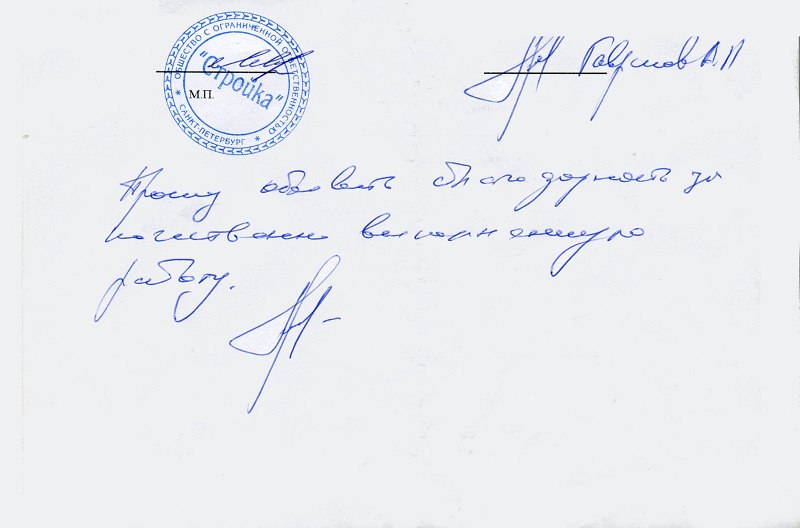 ОБЩЕСТВО С ОГРАНИЧЕННОЙ ОТВЕТСТВЕННОСТЬЮ
"Стройка"
* САНКТ-ПЕТЕРБУРГ *
М.П.
Гаврилов А.П
Прошу объявить благодарность за
качественно выполненную
работу.